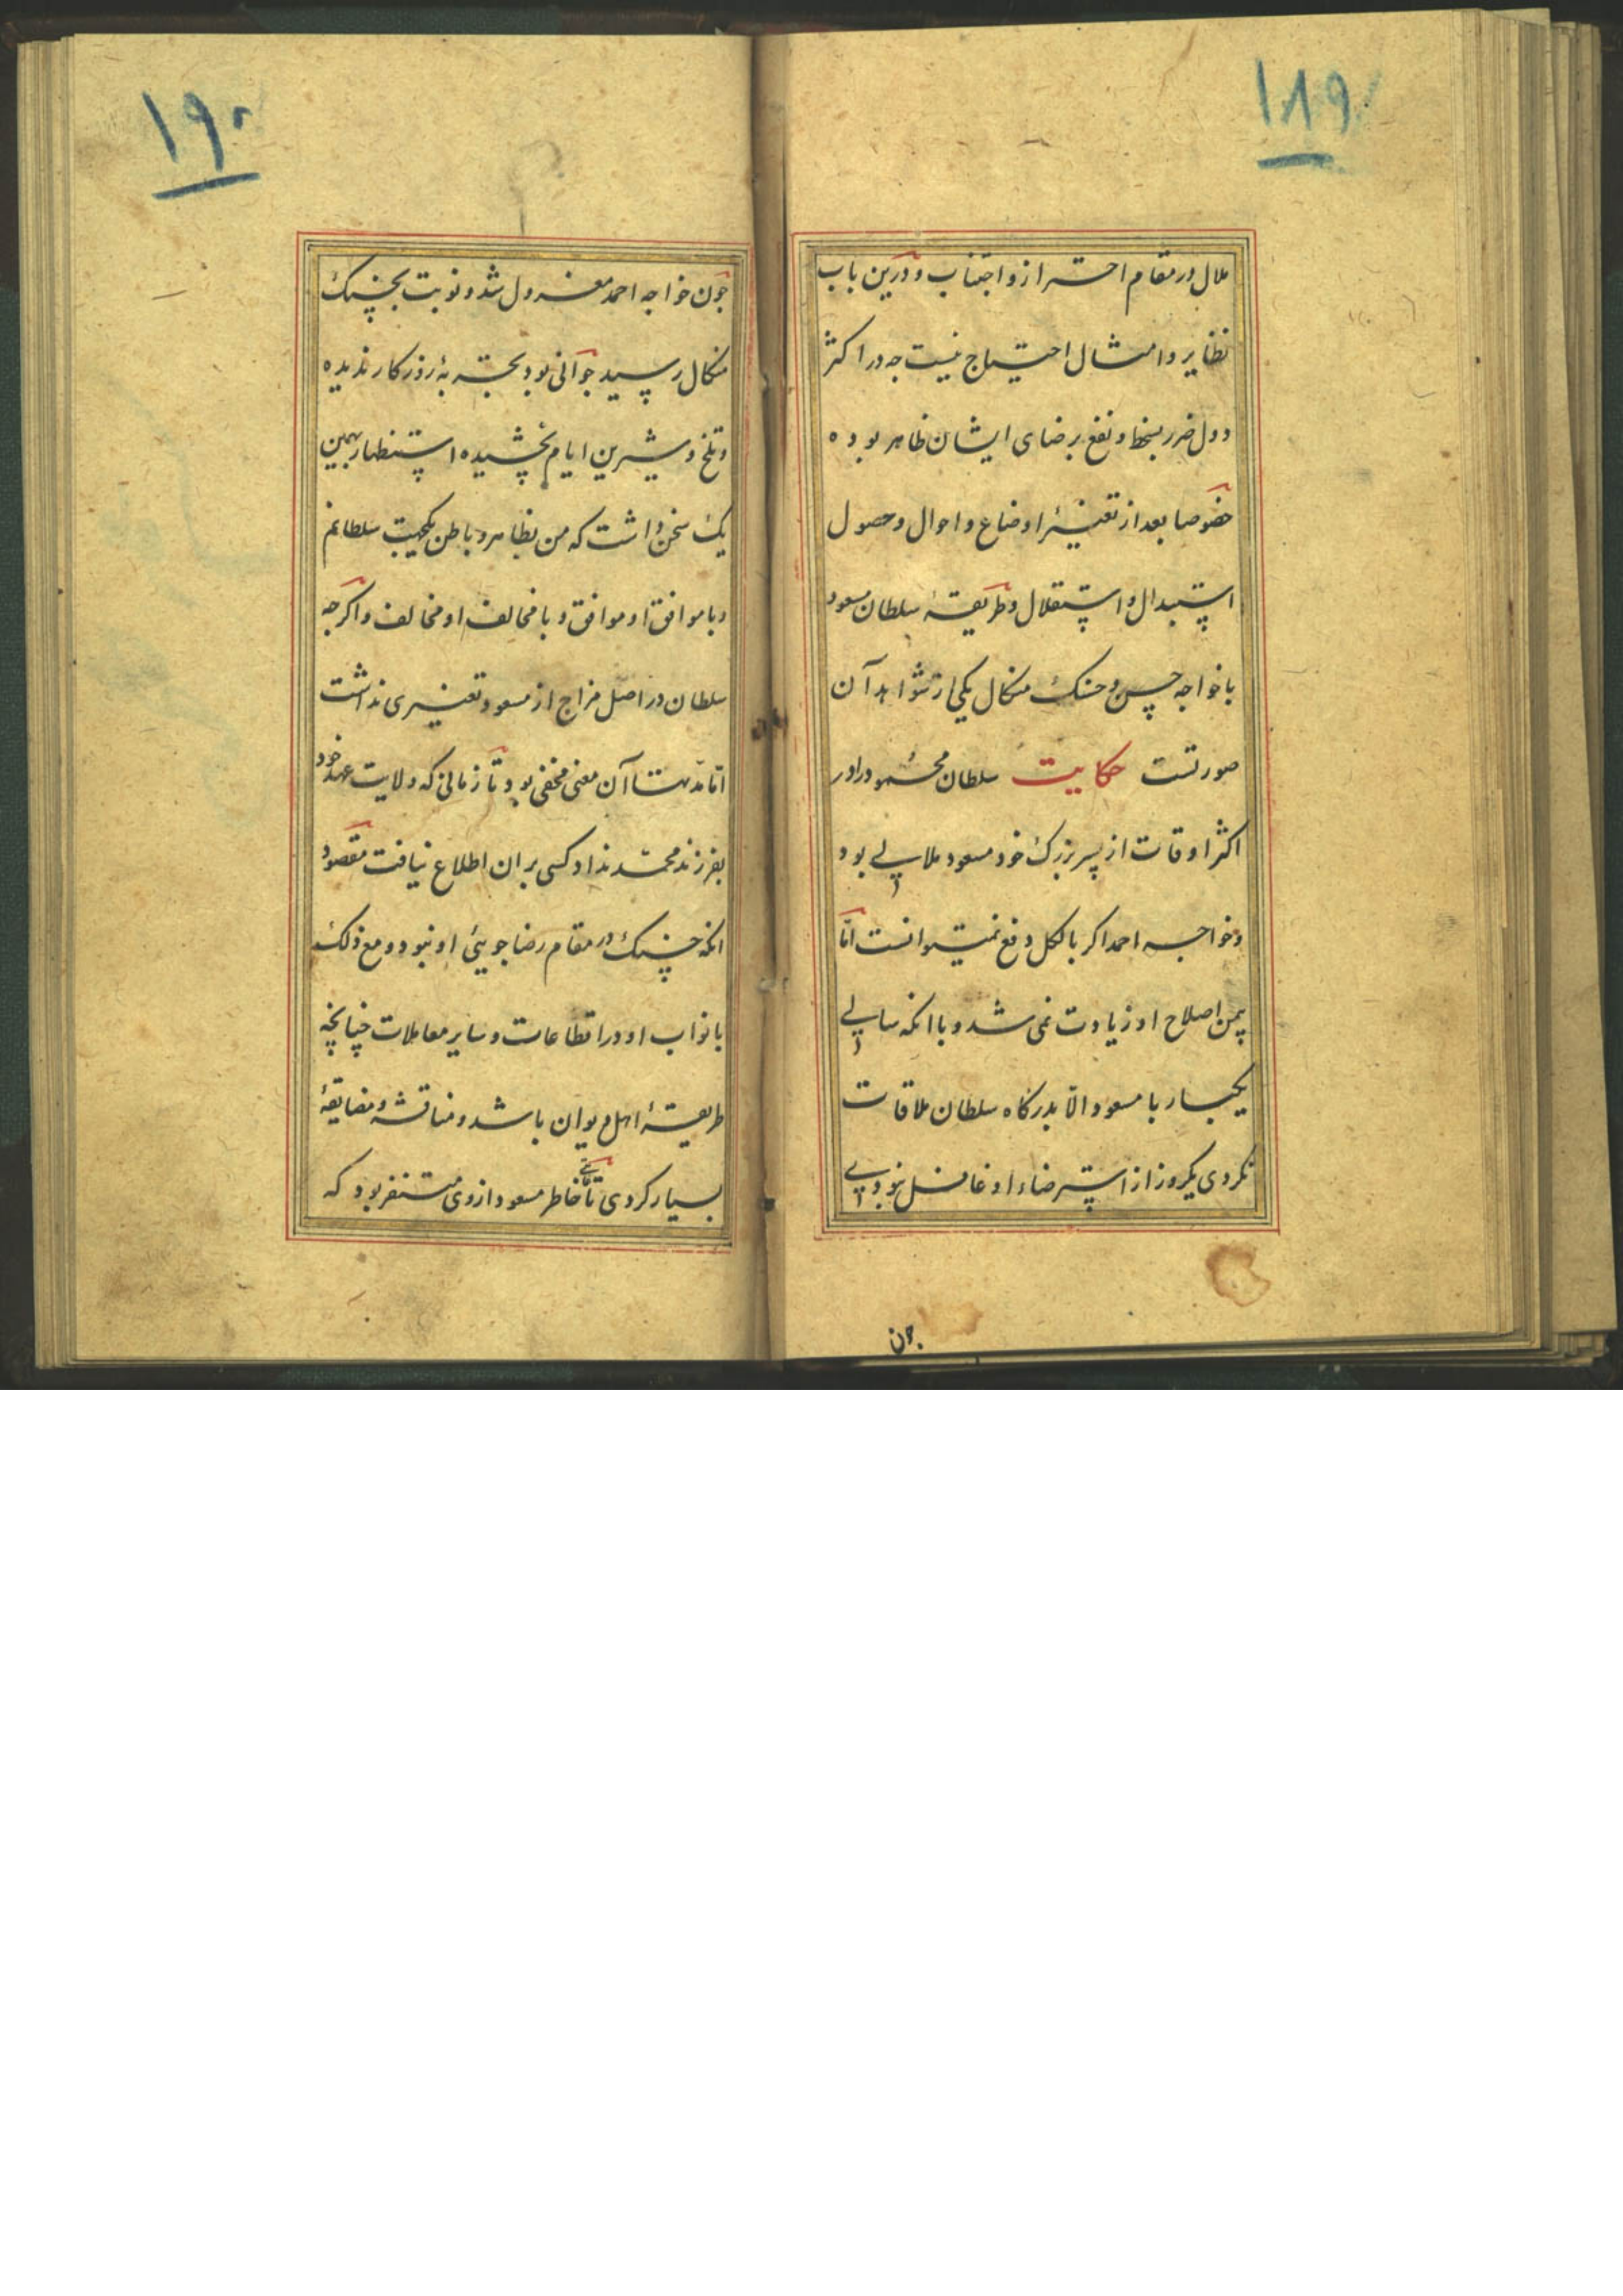 ۱۸۹
ملال در مقام احتراز و اجتناب و درین باب
نظایر و امثال احتیاج نیست چه در اکثر
دول ضرر بسخط و نفع برضای ایشان ظاهر بوده
خصوصا بعد از تغییر اوضاع و احوال و حصول
استبدال و استقلال و طریقهٔ سلطان مسعود
با خواجه حسن و حسنک منکال یکی از شواهد آن
صورتست حکایت سلطان محمود را در
اکثر اوقات از پسر بزرک خود مسعود ملالی بود
و خواجه احمد اکر بالکل دفع نمیتوانست اما
بیمن اصلاح او زیادت نمی شد و با انکه سالی
یکبار با مسعود الا بدرکاه سلطان ملاقات
نکردی یکروز از استرضاء او غافل نبودی
چون
۱۹۰
چون خواجه احمد معزول شد و نوبت بحسنک
منکال رسید جوانی بود بجتبهٔ روزکار ندیده
و تلخ و شیرین ایام نچشیده استظهار بهمین
یک سخن داشت که من بظاهر و باطن یکجهت سلطانم
و با موافق او موافق و با مخالف او مخالف و اکرچه
سلطان در اصل مزاج از مسعود تغییری نداشت
اما مدتها آن معنی مخفی بود و تا زمانی که ولایت عهد خود
بفرزند محمد نداد کسی بر ان اطلاع نیافت مقصود
انکه حسنک در مقام رضا جویی او نبود و مع ذلک
با نواب او در اقطاعات و سایر معاملات چنانچه
طریقهٔ اهل دیوان باشد و مناقشه و مضایقهٔ
بسیار کردی تا خاطر مسعود از وی متنفر بود که